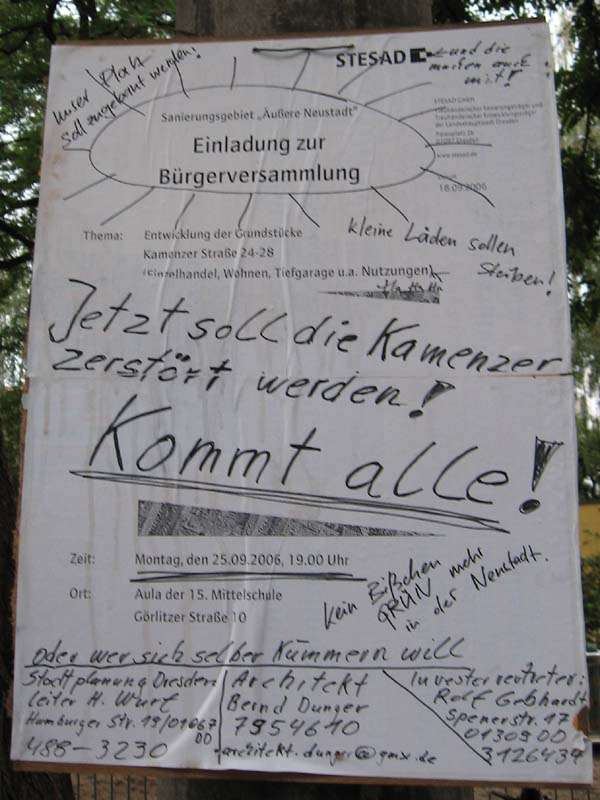 unser Platz
soll zugebaut werden!
STESAD
und die
machen auch
mit!
STESAD GmbH
Treuhänderischer Sanierungsträger und
Treuhänderischer Entwicklungsträger
der Landeshauptstadt Dresden
www.stesad.de
18.09.2006
Sanierungsgebiet „Äußere Neustadt"
Einladung zur
Bürgerversammlung
kleine Läden sollen
sterben!
Thema: Entwicklung der Grundstücke
Kamenzer Straße 24-28
(Einzelhandel, Wohnen, Tiefgarage u.a. Nutzungen)
Jetzt soll die Kamenzer
zerstört werden!
Kommt alle!
Zeit: Montag, den 25.09.2006, 19.00 Uhr
Ort: Aula der 15. Mittelschule
Görlitzer Straße 10
kein Bißchen
GRÜN mehr
in der Neustadt.
oder wer sich selber kümmern will
Stadtplanung Dresden
Leiter H. Wurf
Hamburger Str. 19/01067
DD
488-3230
Architekt
Bernd Dunger
7954610
architekt.dunger@gmx.de
Investervertreter:
Rolf Gebhardt
Spenerstr. 17
01309 DD
3126434